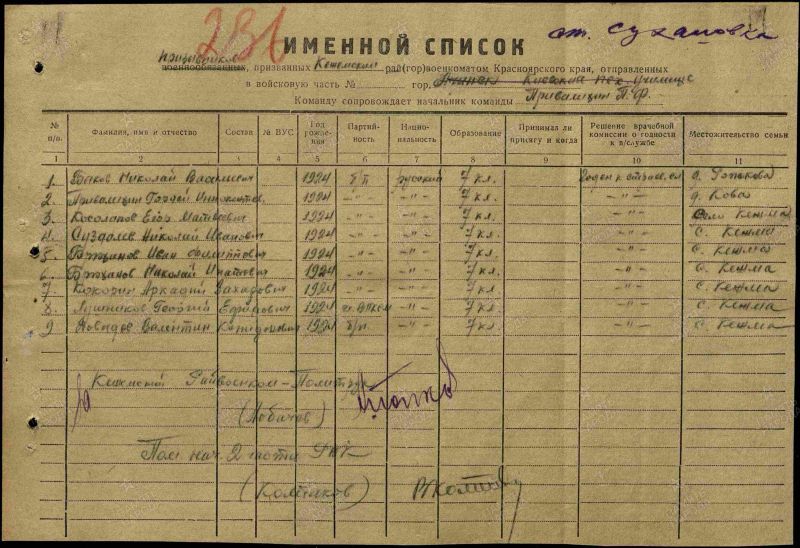 236
ст. Сухановка
ИМЕННОЙ СПИСОК
призывников
военнообязанных, призванных Кежемским рай(гор)военкоматом Красноярского края, отправленных
в войсковую часть № гор. Ачинск Киевское пех. училище
Команду сопровождает начальник команды Привалихин П. Ф.
№ п/п. Фамилия, имя и отчество Состав № ВУС Год рождения Партийность Национальность Образование Принимал ли присягу и когда Решение врачебной комиссии о годности к в/службе Местожительство семьи
1 2 3 4 5 6 7 8 9 10 11
1. Быков Николай Васильевич 1924 б/п русский 7 кл. Годен к строев. сл.
2. Привалихин 1924 -"- -"- 7 кл. -"- д. Кова
3. Косолапов Егор Матвеевич 1924 -"- -"- 7 кл. -"- село Кежма
4. Суздалев Николай Иванович 1924 -"- -"- 7 кл. -"- с. Кежма
5. Иван 1924 -"- -"- 7 кл. -"- с. Кежма
6. Николай 1924 -"- -"- 7 кл. -"- с. Кежма
7. Кокорин Аркадий Захарович 1924 -"- -"- 7 кл. -"- с. Кежма
8. Лушников Георгий 1924 чл. ВЛКСМ -"- 7 кл. -"- с. Кежма
9. Валентин 1924 б/п. -"- 7 кл. -"- с. Кежма
За Кежемский Райвоенком - Политрук
(Лобачов)
Пом нач. 2 части РВК
(Колпаков)